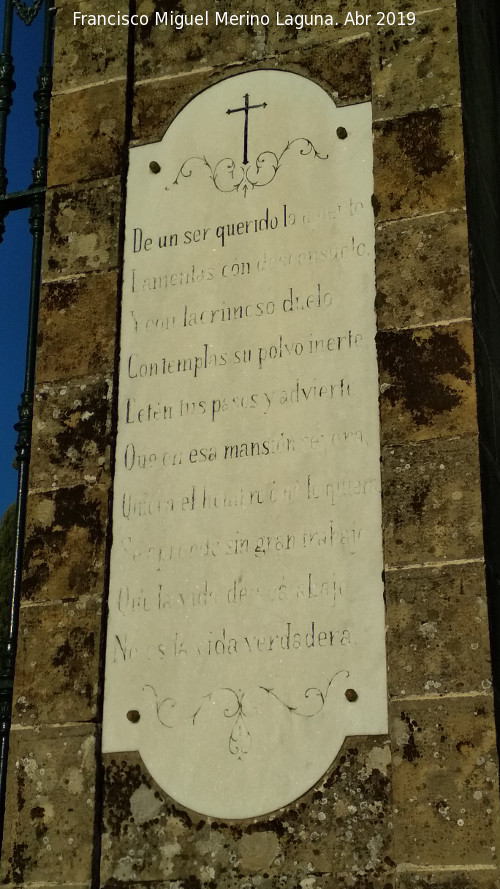 Francisco Miguel Merino Laguna. Abr 2019
De un ser querido la
Lamentas con desconsuelo,
Y con lacrimoso duelo
Contemplas su polvo inerte
Deten tus pasos y advierte
Que en esa mansión
Quiera el hombre ó no lo quiera
Se aprende sin gran trabajo
Que la vida de acá abajo
No es la vida verdadera.